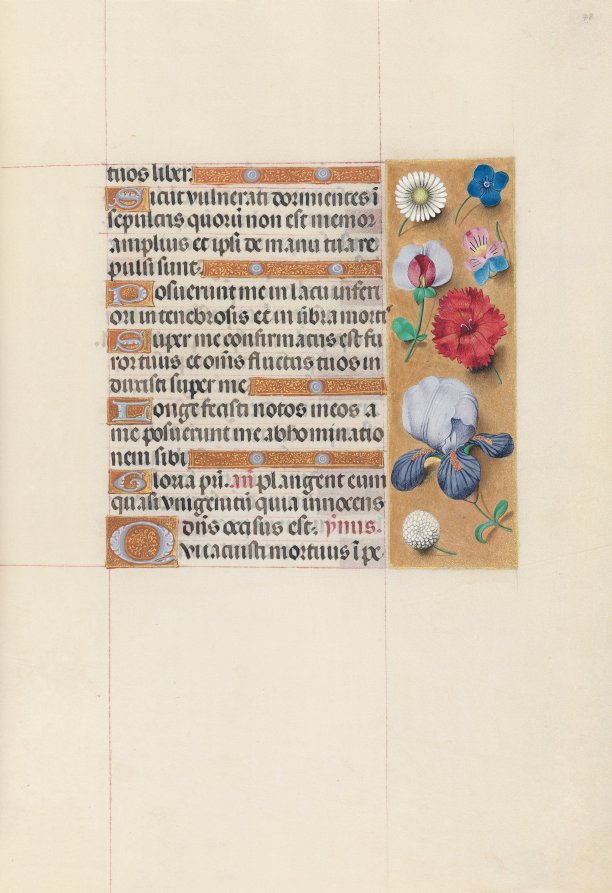 78
tuos liber.
Sicut vulnerati dormientes ī
sepulcris quorū non est memor
amplius et ipsi de manu tua re
pulsi sunt.
Posuerunt me in lacu inferi
ori in tenebrosis et in ūbra mort
Super me confirmatus est fu
ror tuus et om̄s fluctus tuos in
duxisti super me
Longe fecisti notos meos a
me posuerunt me abhominatio
nem sibi
Gloria pr̄i. añ plangent eum
quasi vnigenitū quia innocens
dn̄s occisus est. ymus.
Qui iacuisti mortuus ī pe